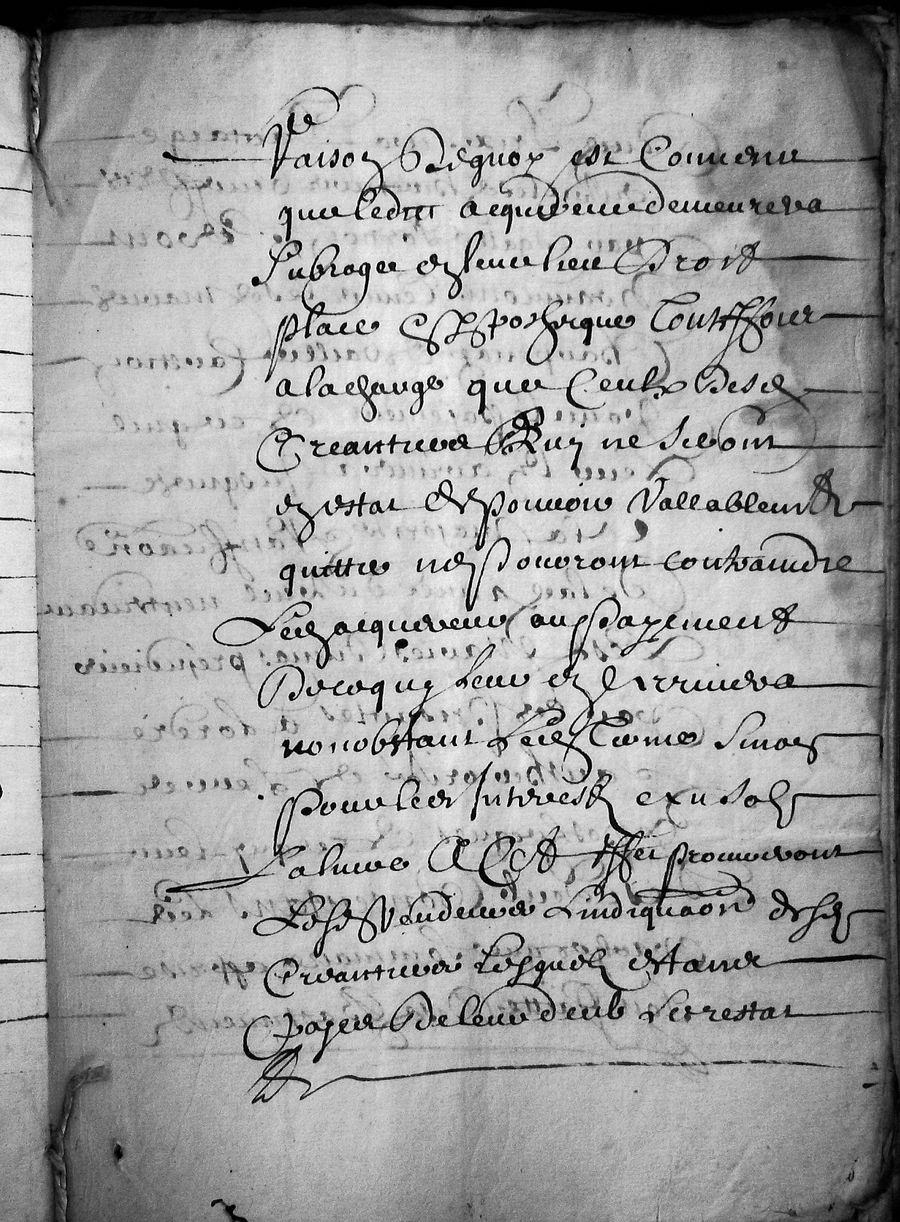 Raison De quoy est Convenu
que ledict acquereur demeurera
Subroge en leur lieu Droit
place Et Hypotheque
a la charge que Ceulx Desd
Creantiers Quy ne Seront
en estat de pouvoir Vallablement
quitter ne pouront contraindre
Led acquereur au payement
De ce quy leur en
nonobstant Led terme Sinon
pour les Interest
A Cest effet
Lesd Vendeurs Lindiquaon desd
Creantiers Lesquelz Estant
payer De leur deub Le restat